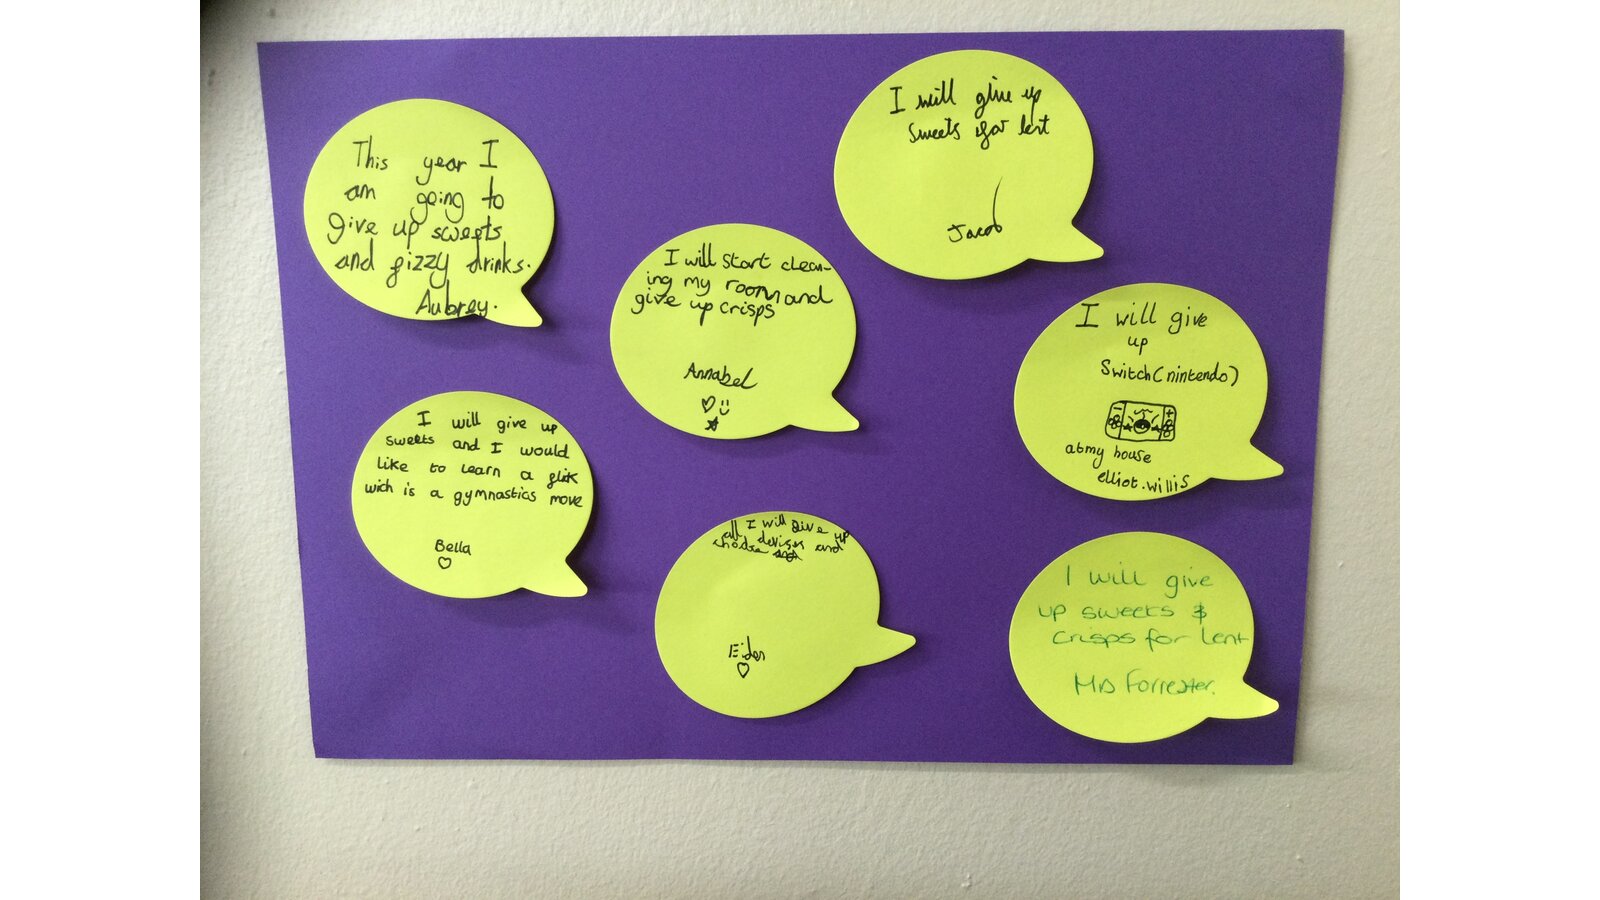 This year I
am going to
give up sweets
and fizzy drinks.
Aubrey.
I will give up
sweets for lent
Jacob
I will start clean-
ing my room and
give up crisps
Annabel
I will give
up
Switch(nintendo)
at my house
elliot.willis
I will give up
sweets and I would
like to learn a flik
wich is a gymnastics move
Bella
I will give up
all devises and
Eiden
I will give
up sweets &
crisps for lent
Mrs Forrester.